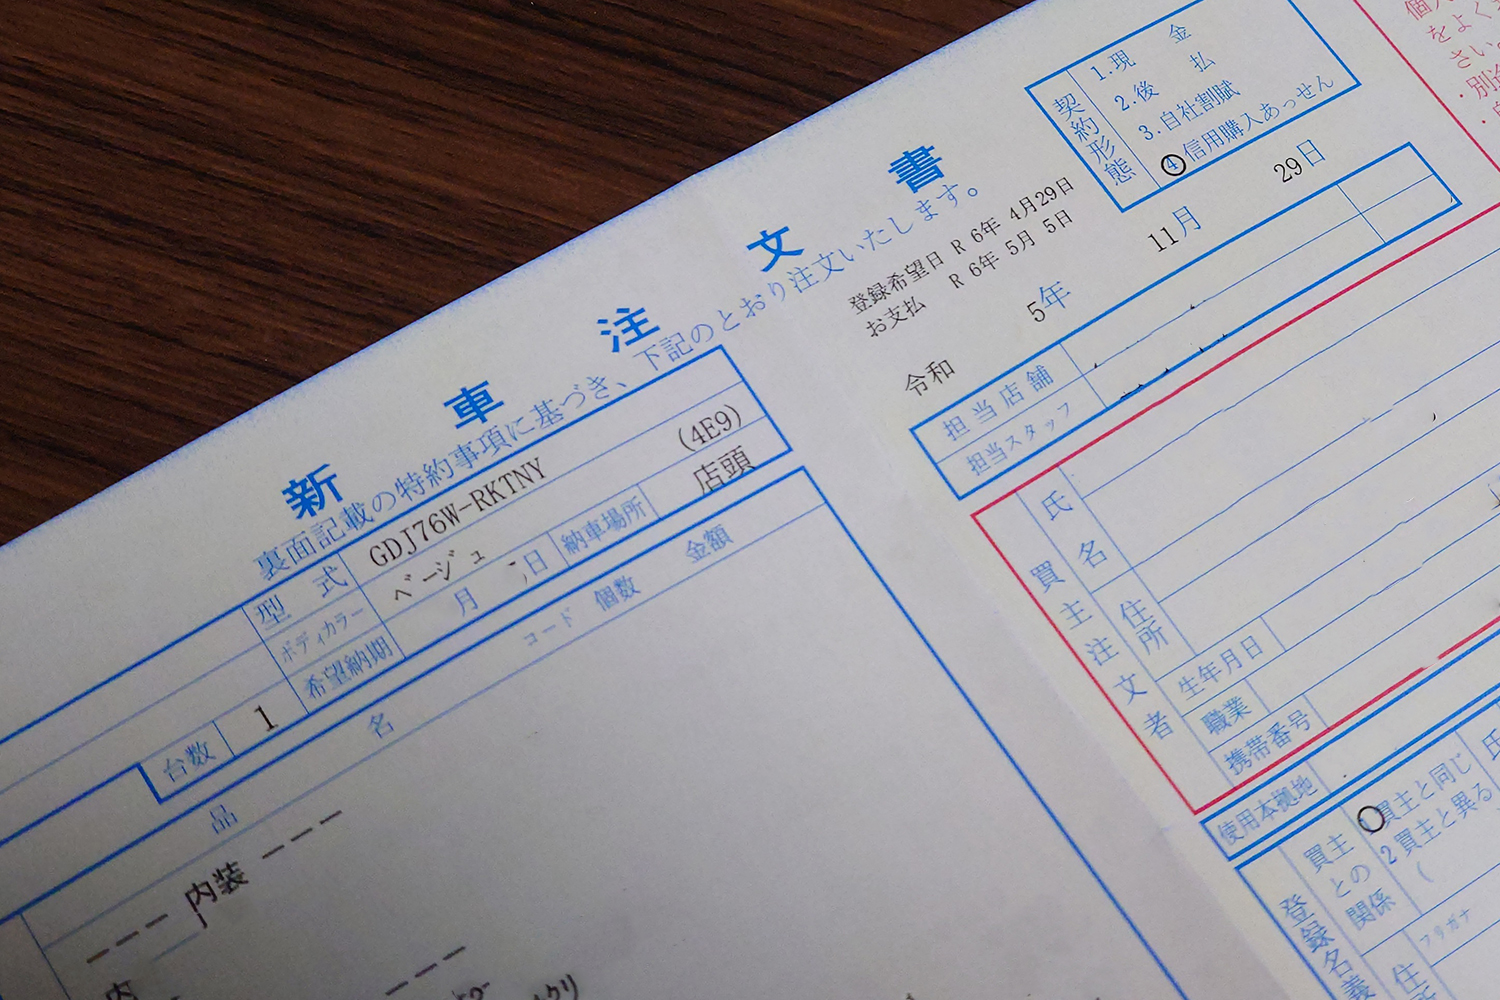 新車注文書
裏面記載の特約事項に基づき、下記のとおり注文いたします。
型式 GDJ76W-RKTNY
ボディカラー ベージュ (4E9)
希望納期 月 日 納車場所 店頭
台数 1
品名 コード 個数 金額
---- 内装 ----
内
契約形態
1.現金
2.後払
3.自社割賦
④信用購入あっせん
登録希望日 R 6年 4月29日
お支払 R 6年 5月 5日
令和 5年 11月 29日
担当店舗
担当スタッフ
買主注文者
氏名
住所
生年月日
職業
携帯番号
使用本拠地
登録名義
買主との関係
買主と同じ
2買主と異る
(
フリガナ
氏
住
個人
をよく
さい。
・別途